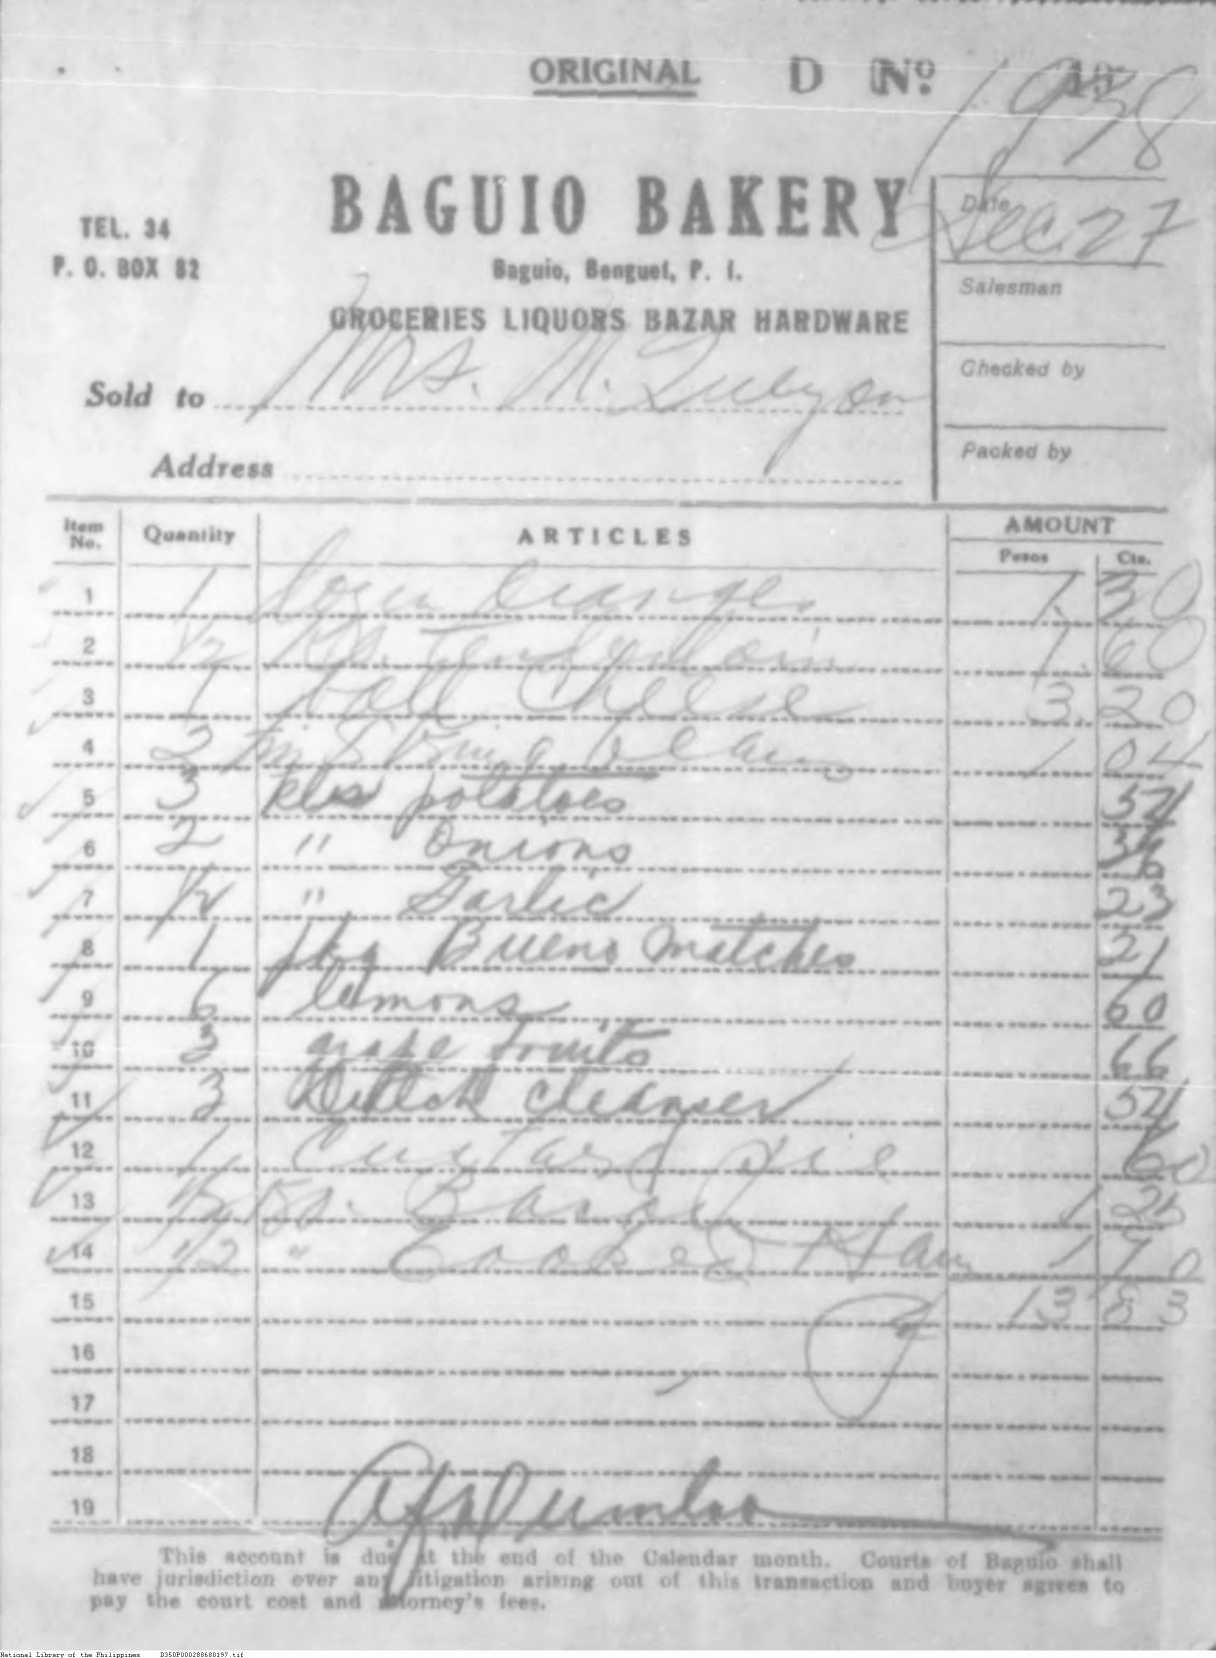 ORIGINAL D No.
1938
BAGUIO BAKERY
TEL. 34
P. O. BOX 82
Baguio, Benguet, P. I.
GROCERIES LIQUORS BAZAR HARDWARE
Date Dec. 27
Salesman
Checked by
Packed by
Sold to Mrs. M. Quezon
Address
Item No. Quantity ARTICLES AMOUNT
Pesos Cts.
1 1 Dozen Oranges 1. 30
2 1/2 Ks. Tenderloin 1. 60
3 1 ball Cheese 3. 20
4 2 String beans 1 04
5 3 kls potatoes 54
6 2 " Onions 36
7 1/2 " Garlic 23
8 1 pkg Bueno matches 21
9 6 lemons 60
10 3 grape fruits 66
11 3 Dutch cleanser 54
12 1 Custard pie 60
13 1/2 Ks. Bacon 1 25
14 1/2 " Cooked Ham 1 70
15 13 83
16
17
18
19
This account is due at the end of the Calendar month. Courts of Baguio shall
have jurisdiction over any litigation arising out of this transaction and buyer agrees to
pay the court cost and attorney's fees.
National Library of the Philippines D350P000288680197.tif